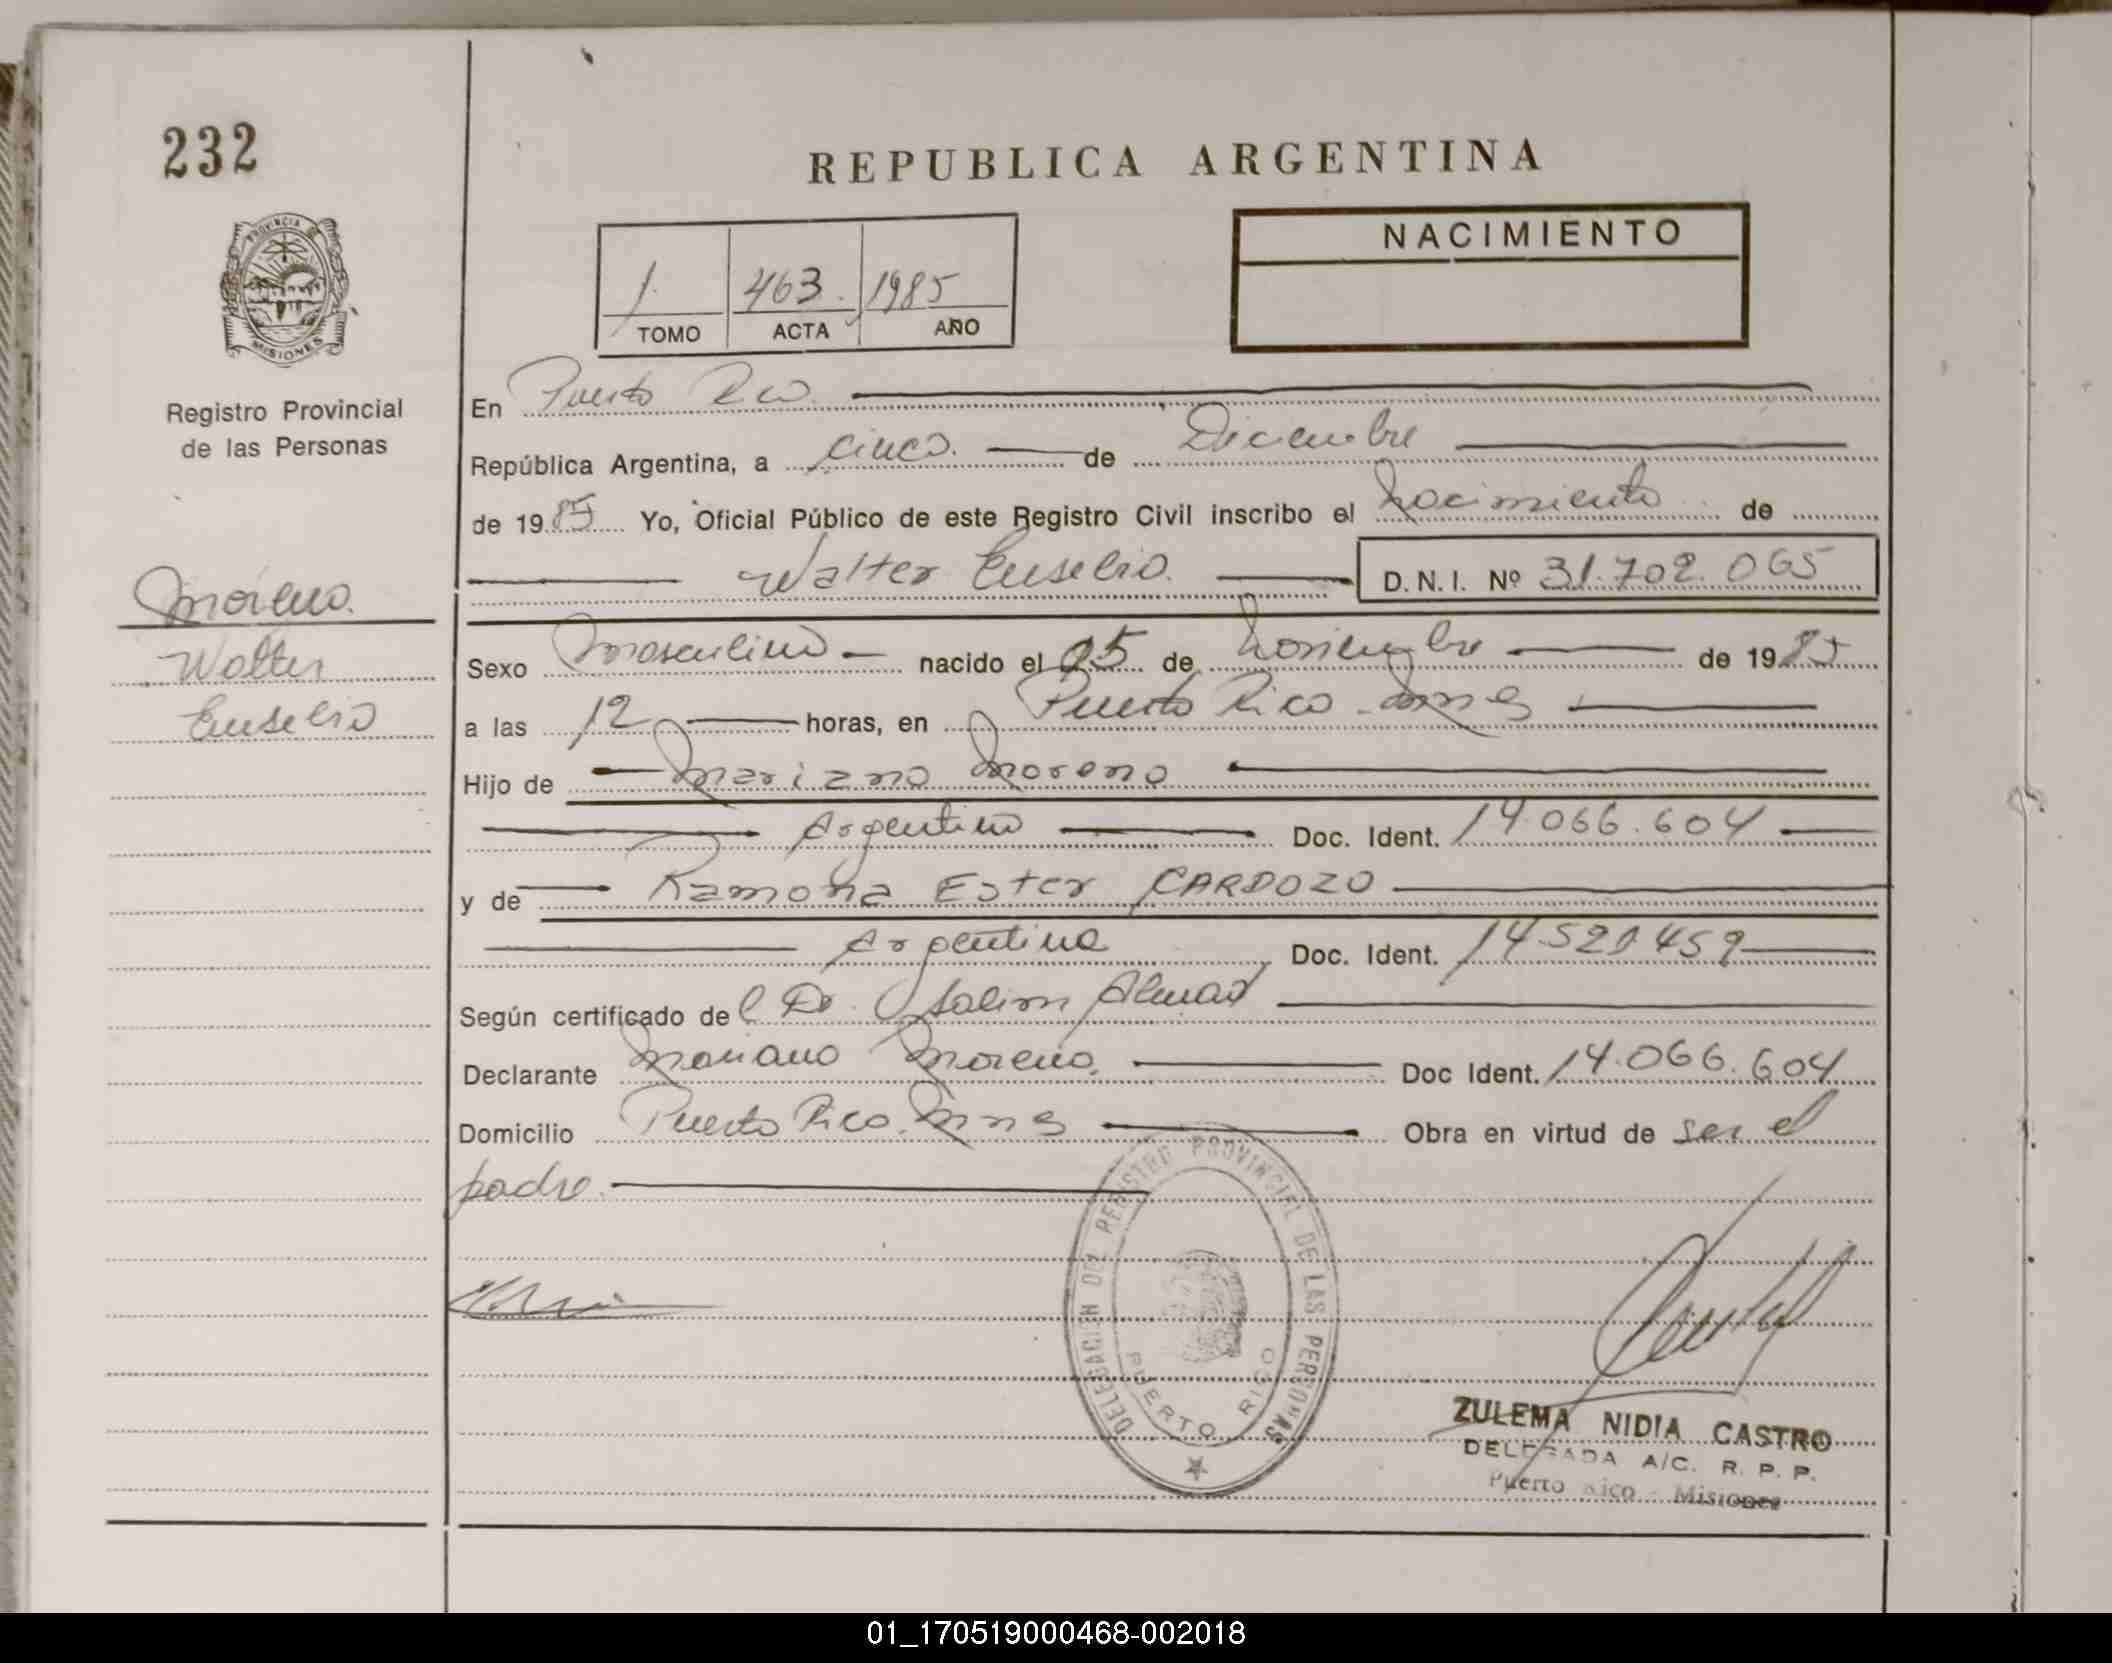 232
REPUBLICA ARGENTINA
PROVINCIA DE
MISIONES
Registro Provincial
de las Personas
NACIMIENTO
1. 463. 1985
TOMO ACTA AÑO
En Puerto Rico.
República Argentina, a cinco. de Diciembre
de 1985 Yo, Oficial Público de este Registro Civil inscribo el Nacimiento de
Walter Eusebio. D.N.I. Nº 31.702.065
Moreno.
Walter
Eusebio
Sexo Masculino nacido el 05 de Noviembre de 1985
a las 12 horas, en Puerto Rico. Mnes
Hijo de Mariano Moreno
Argentino Doc. Ident. 14.066.604
y de Ramona Ester CARDOZO
Argentina Doc. Ident. 14.521.459
Según certificado del Dr. Salim
Declarante Mariano Moreno. Doc Ident. 14.066.604
Domicilio Puerto Rico. Mnes Obra en virtud de ser el
padre.
DELEGACION DEL REGISTRO PROVINCIAL DE LAS PERSONAS
PUERTO RICO
ZULEMA NIDIA CASTRO
DELEGADA A/C. R. P. P.
Puerto Rico - Misiones
01_170519000468-002018